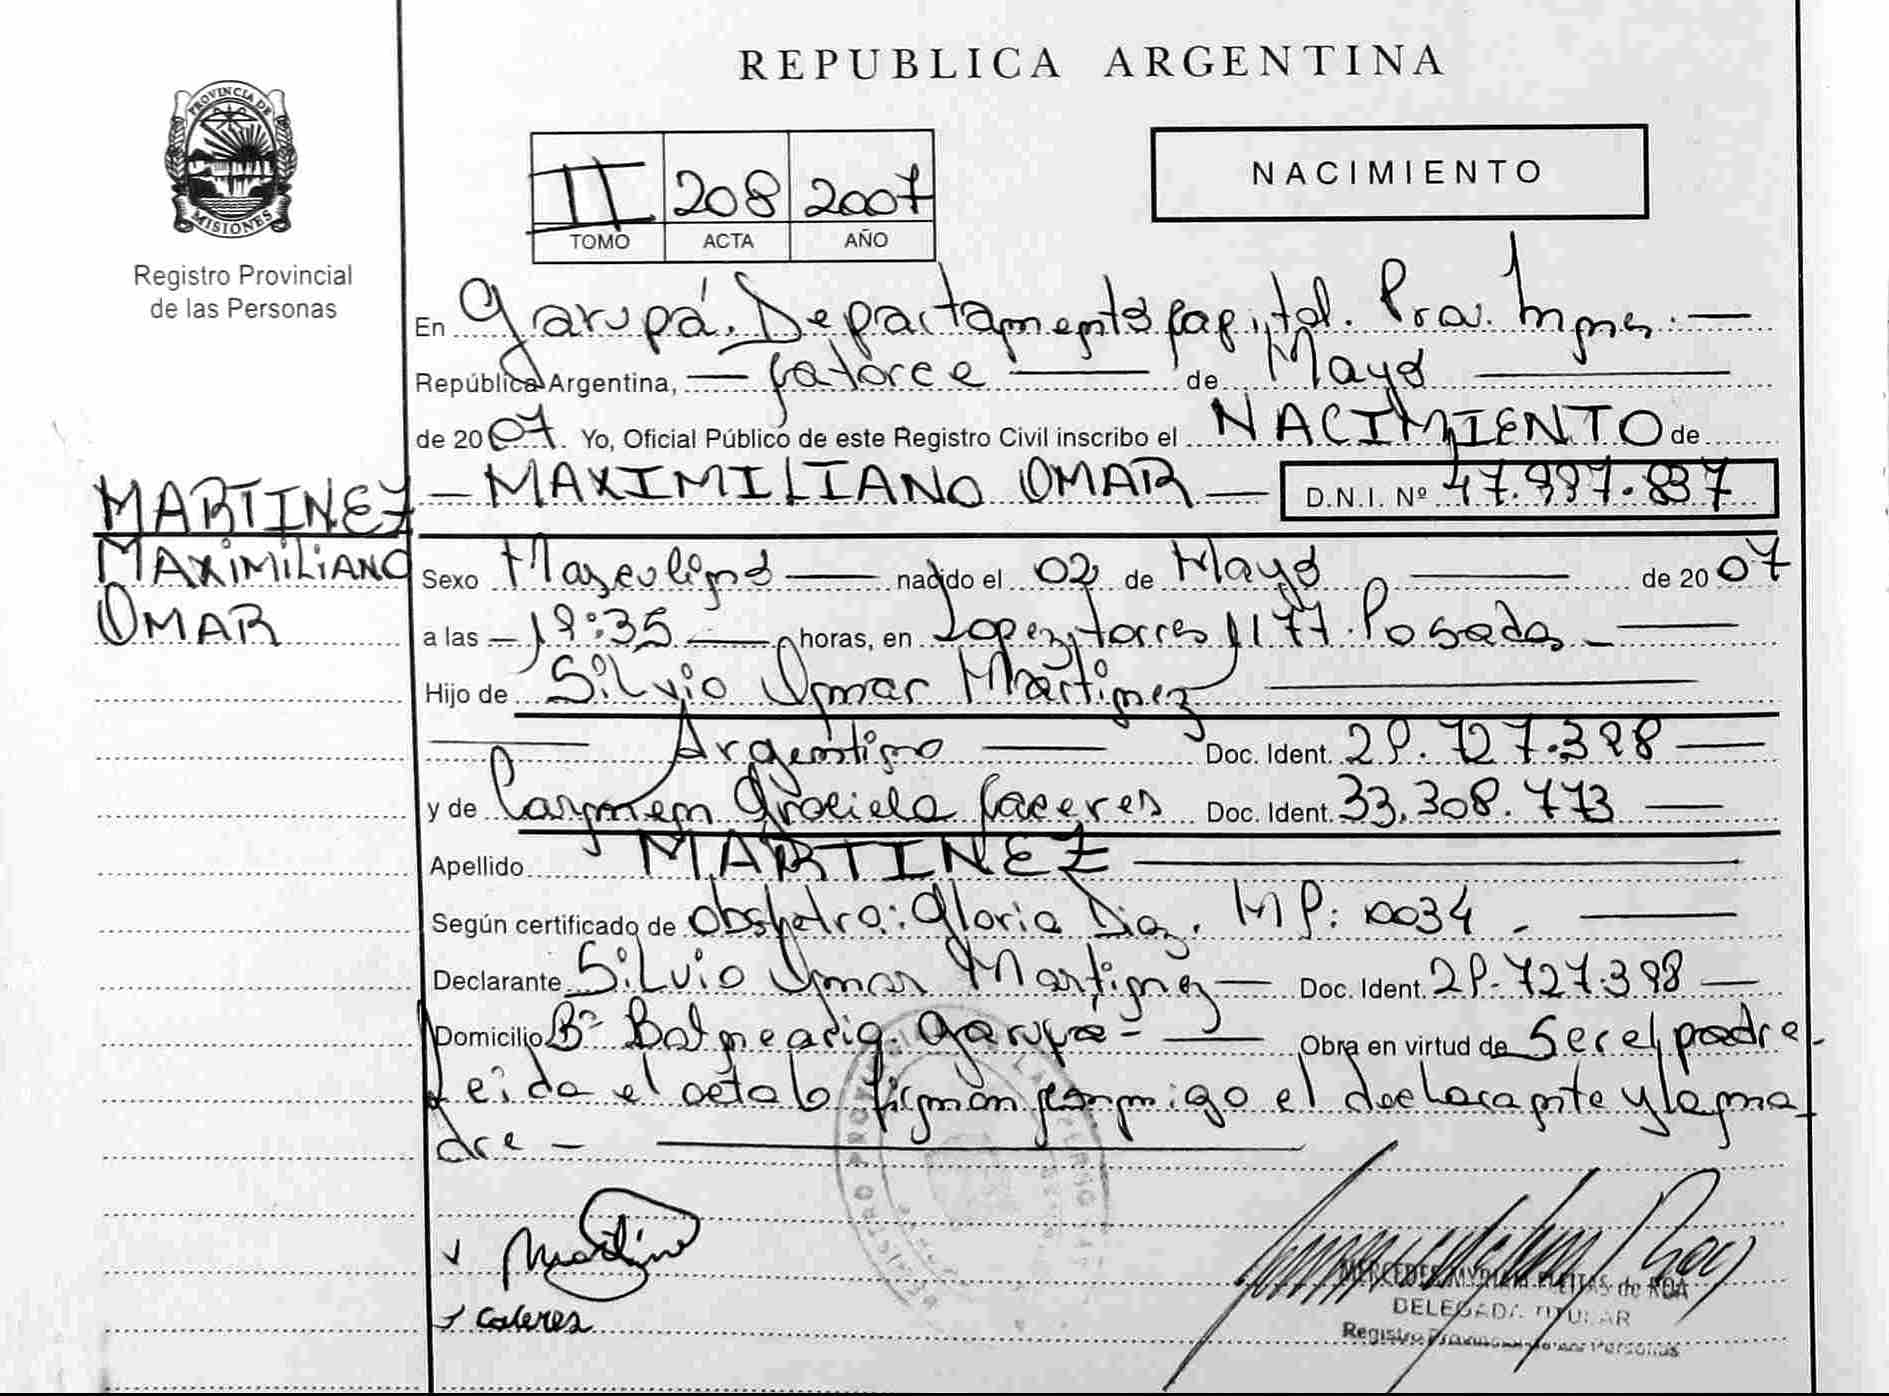 REPUBLICA ARGENTINA
PROVINCIA DE
MISIONES
Registro Provincial
de las Personas
II 208 2007
TOMO ACTA AÑO
NACIMIENTO
En Garupá. Departamento Capital. Prov. Mnes.
República Argentina, catorce de Mayo
de 2007. Yo, Oficial Público de este Registro Civil inscribo el NACIMIENTO de
MAXIMILIANO OMAR D.N.I. Nº
MARTINEZ
MAXIMILIANO
OMAR
Sexo Masculino nacido el 02 de Mayo de 2007
a las 19:35 horas, en Lopez y torres 1177. Posadas
Hijo de Silvio Omar Martinez
Argentino Doc. Ident. 29.727.398
y de Carmen Graciela Caceres Doc. Ident. 33.308.773
Apellido MARTINEZ
Según certificado de obstetra: Gloria Diaz. MP: 0034
Declarante Silvio Omar Martinez Doc. Ident. 29.727.398
Domicilio Bº Balnearia Garupá Obra en virtud de Ser el padre
Leida el acta la firman conmigo el declarante y la ma
dre
Martine
Caceres
MERCEDES MYRIAM FLEITAS de ROA
DELEGADA TITULAR
Registro Provincial de las Personas